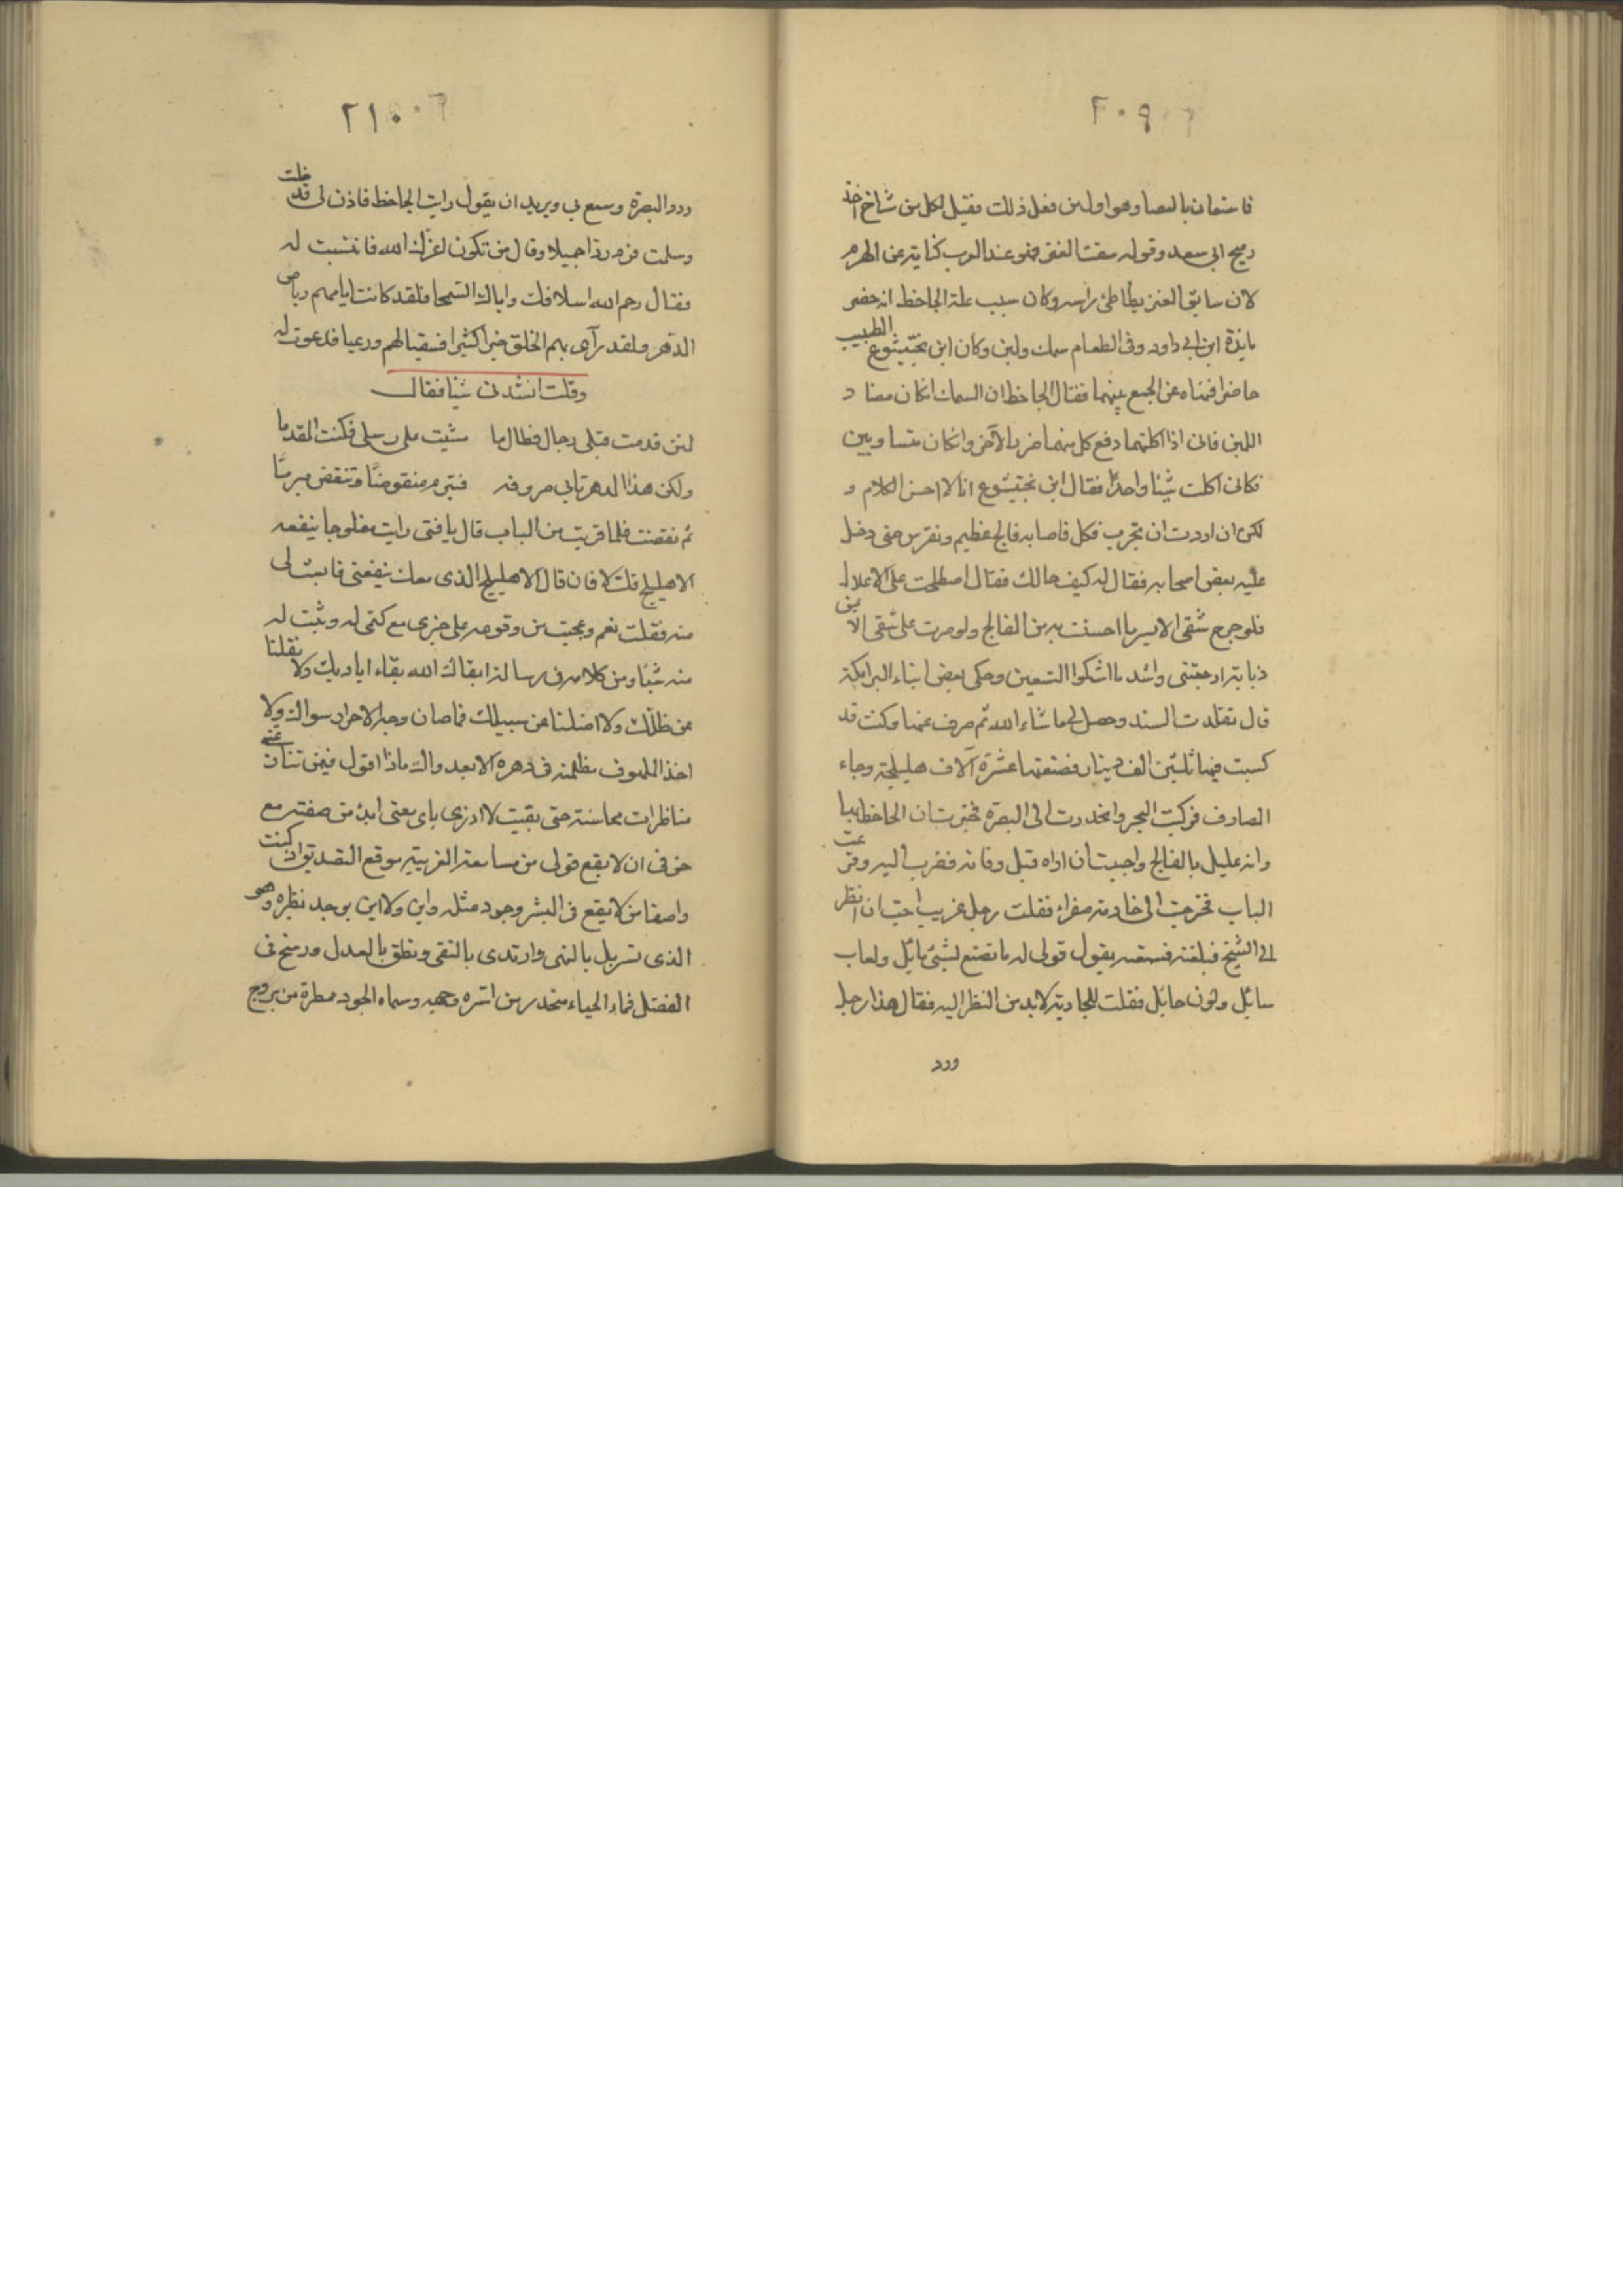 ٢٠٩
فاستعان بالعصا وهو اول من فعل ذلك فقيل لكل من شاخ اخذ
رميح ابي سعد وقوله سقت العنز فهو عند العرب كناية عن الهرم
لان سايق العنز يطاطئ راسه وكان سبب علة الجاحظ انه حضر
مايدة ابن ابي داود وفي الطعام سمك ولبن وكان ابن بختيشوع الطبيب
حاضرا فنهاه عن الجمع بينهما فقال الجاحظ ان السمك ان كان مضاد
اللبن فاني اذا اكلتهما دفع كل منهما ضرر الآخر وان كان متساويين
فكاني اكلت شيئا واحدًا فقال ابن بختيشوع انا لا احسن الكلام و
لكن ان اردت ان تجرب فكل فاصابه فالج عظيم ونقرس حتى دخل
عليه بعض اصحابه فقال له كيف حالك فقال اصطلحت على الاعلال
فلو جرح شقى الايسر ما احسست به من الفالج ولو مرت على شقى الايمن
ذبابة ازعجتنى واشد ما اشكوا التسعين وحكى بعض ابناء البرامكة
قال تقلدت السند وحصل لي ما شاء الله ثم صرف عنها وكنت قد
كسبت فيها ثلثين الف دينار فصنعتها عشرة آلاف هليلجة وجاء
الصارف فركبت البحر وانحدرت الى البصرة فخبرت ان الجاحظ بها
وانه عليل بالفالج واحببت ان اراه قبل وفاته فقرب اليه وقرعت
الباب فخرجت الى خادمة صفراء فقلت رجل غريب احب ان انظر
الى الشيخ فبلغته فسمعته يقول قولى له ما تصنع بشئ مائل ولعاب
سائل ولون حائل فقلت للجارية لابد من النظر اليه فقال هذا رجل
ورد
٢١٠
ورد البصرة وسمع بي ويريد ان يقول رايت الجاحظ فاذن لى فدخلت
وسلمت فرد ردا جميلا وقال من تكون اعزك الله فانتسبت له
فقال رحم الله اسلافك واباك السمحا فلقد كانت ايامهم رياض
الدهر ولقد رآى بهم الخلق خيرا كثيرا فسقيا لهم ورعيا فدعوت له
وقلت انشدنى شيئا فقال
لئن قدمت قبلى رجال فطال ما مشيت على رسلى فكنت المقدما
ولكن هذا الدهر تاتي صروفه فتبرم منقوضًا وتنقض مبرمًا
ثم نهضت فلما قربت من الباب قال يا فتى رايت مفلوجا ينفعه
الاهليلج قلت لا فان قال الاهليلج الذى معك ينفعنى فابعث لى
منه فقلت نعم وعجبت من وقوعه على خبرى مع كتمى له وبعثت له
منه شيئا ومن كلامه في رسالة ابقاك الله بقاء اياديك ولا نقلنا
عن ظلك ولا اضلنا عن سبيلك فما صان وجه الاحرار سواك ولا
اخذ الملهوف مظلمته في دهره الا بعدواك ماذا اقول فيمن تناءت عنه
مناظرات محاسنه حتى بقيت لا ادرى باى معنى ابدئ من صفته مع
خوفى ان لا يقع قولى من مسامعه الغريبة موقع التصديق اذ كنت
واصفا من لا يقع في البشر وجود مثله واين ولا اين يوجد نظره وهو
الذى تسربل بالنهى وارتدى بالتقى ونطق بالعدل ورسخ في
الفضل فماء الحياء منحدر من اسره وجهه وسماء الجود ممطرة من بروج